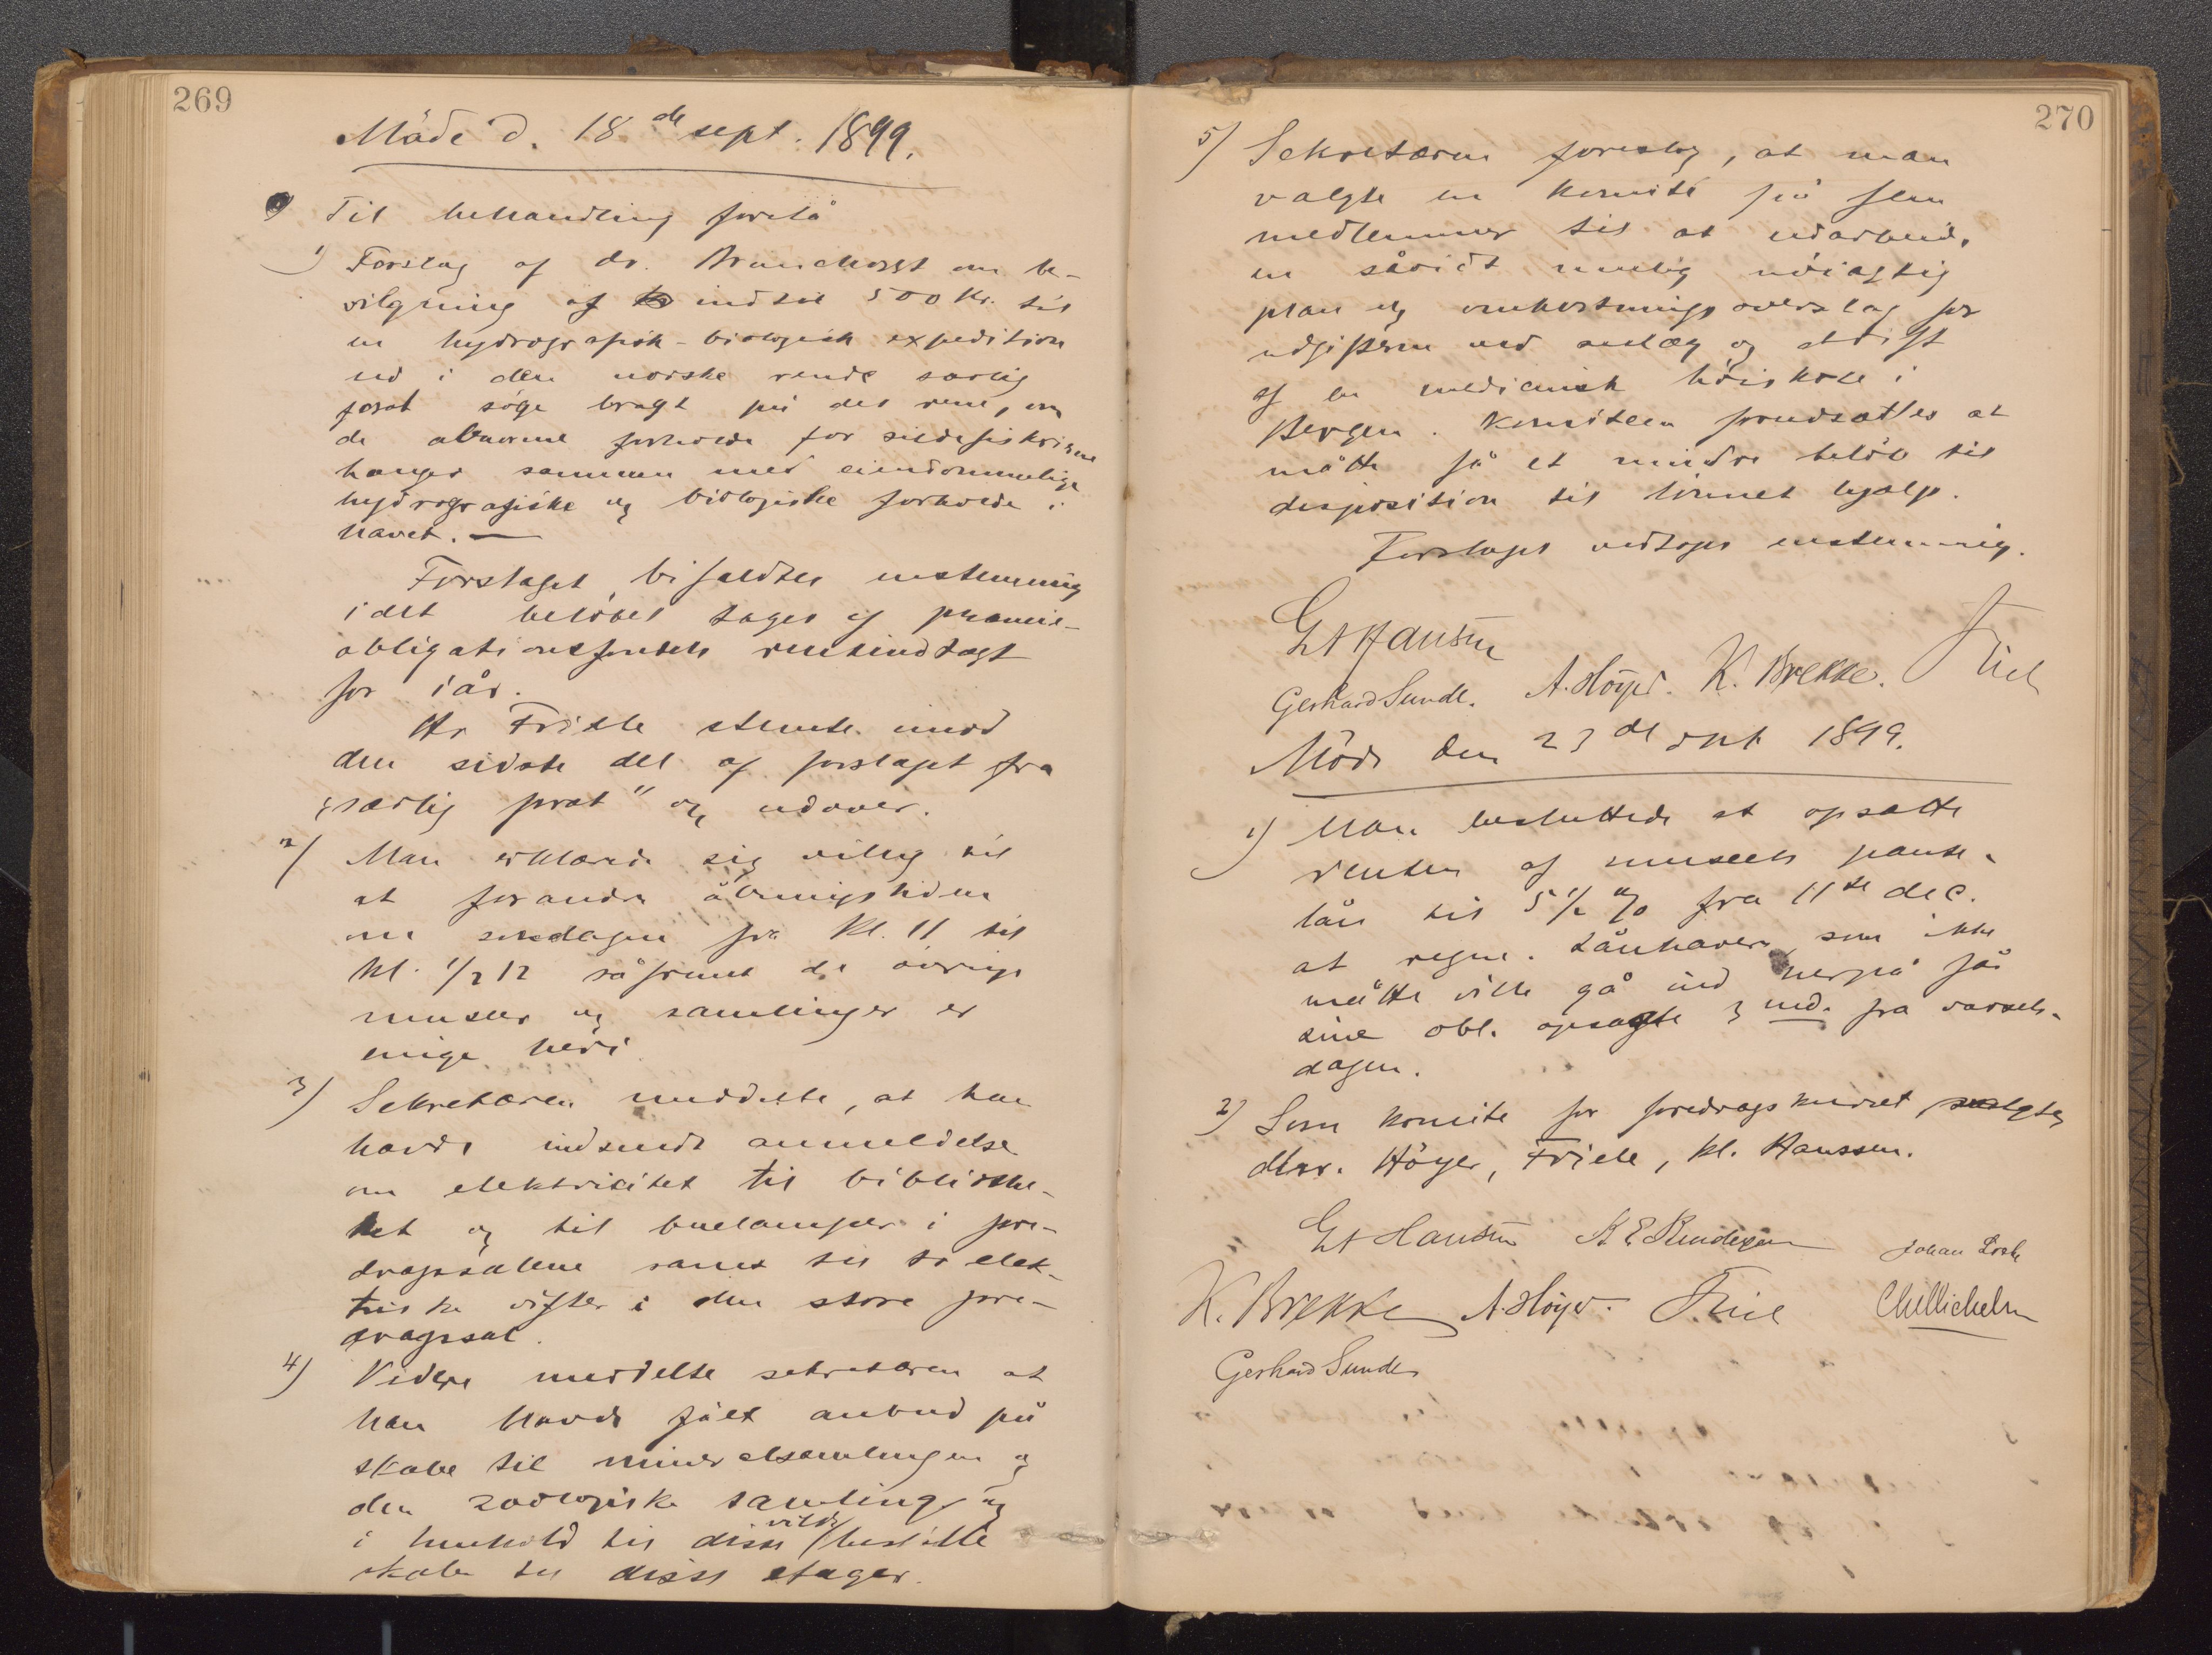 269
Möde d. 18de sept. 1899.
Til behandling forelå
1) Forslag af dr. Brunchorst om be-
vilgning af indtil 500 Kr. til
en hydrografisk-biologisk expedition
ud i den norske rende særlig
forat söge bragt på det rene, om
de abnorme forholde for sildefiskerierne
hænger sammen med eiendommelige
hydrografiske og biologiske forholde i
havet. —
Forslaget bifaldtes enstemmig
idet belöbet tages af præmie-
obligationsfondets renteindtægt
for iår.
Hr Friele stemte imod
den sidste del af forslaget fra
"særlig forat" og udover.
2) Man erklærede sig villig til
at forandre åbningstiden
om söndagen fra Kl. 11 til
Kl. 1/2 12 såfremt de övrige
museer og samlinger er
enige heri
3) Sekretæren meddelte, at han
havde indsendt anmeldelse
om elektricitet til bibliothe-
ket og til buelamper i fore-
dragssalene samt til to elek-
triske vifter i den store fore-
dragssal.
4) Videre meddelte sekretæren at
han havde fået anbud på
skabe til mineralsamlingen og
den zoologiske samling og
i henhold til disse vilde bestille
skabe til disse etager.
270
5) Sekretæren foreslog, at man
valgte en komité på fem
medlemmer til at udarbeide
en såvidt mulig nöiagtig
plan og omkostningsoverslag for
udgifterne ved anlæg og drift
af en medicinsk höiskole i
Bergen. Komiteen forudsattes at
måtte få et mindre belöb til
disposition til lönnet hjælp.
Forslaget vedtoges enstemmig.
G A Hansen
Gerhard Sunde. A. Höyer. K. Brekke. Friele
Möde den 23de okt 1899.
1) Man besluttede at opsætte
renten af museets pante-
lån til 5 1/2 % fra 11te dec.
at regne. Lånhavere som ikke
måtte ville gå ind herpå får
sine obl. opsagte 3 md. fra varsels-
dagen.
2) Som komite for foredragskurset valgtes
dhrr. Höyer, Friele, Kl. Hanssen.
G A Hansen Johan Lothe
K. Brekke A. Höyer. Friele
Gerhard Sunde